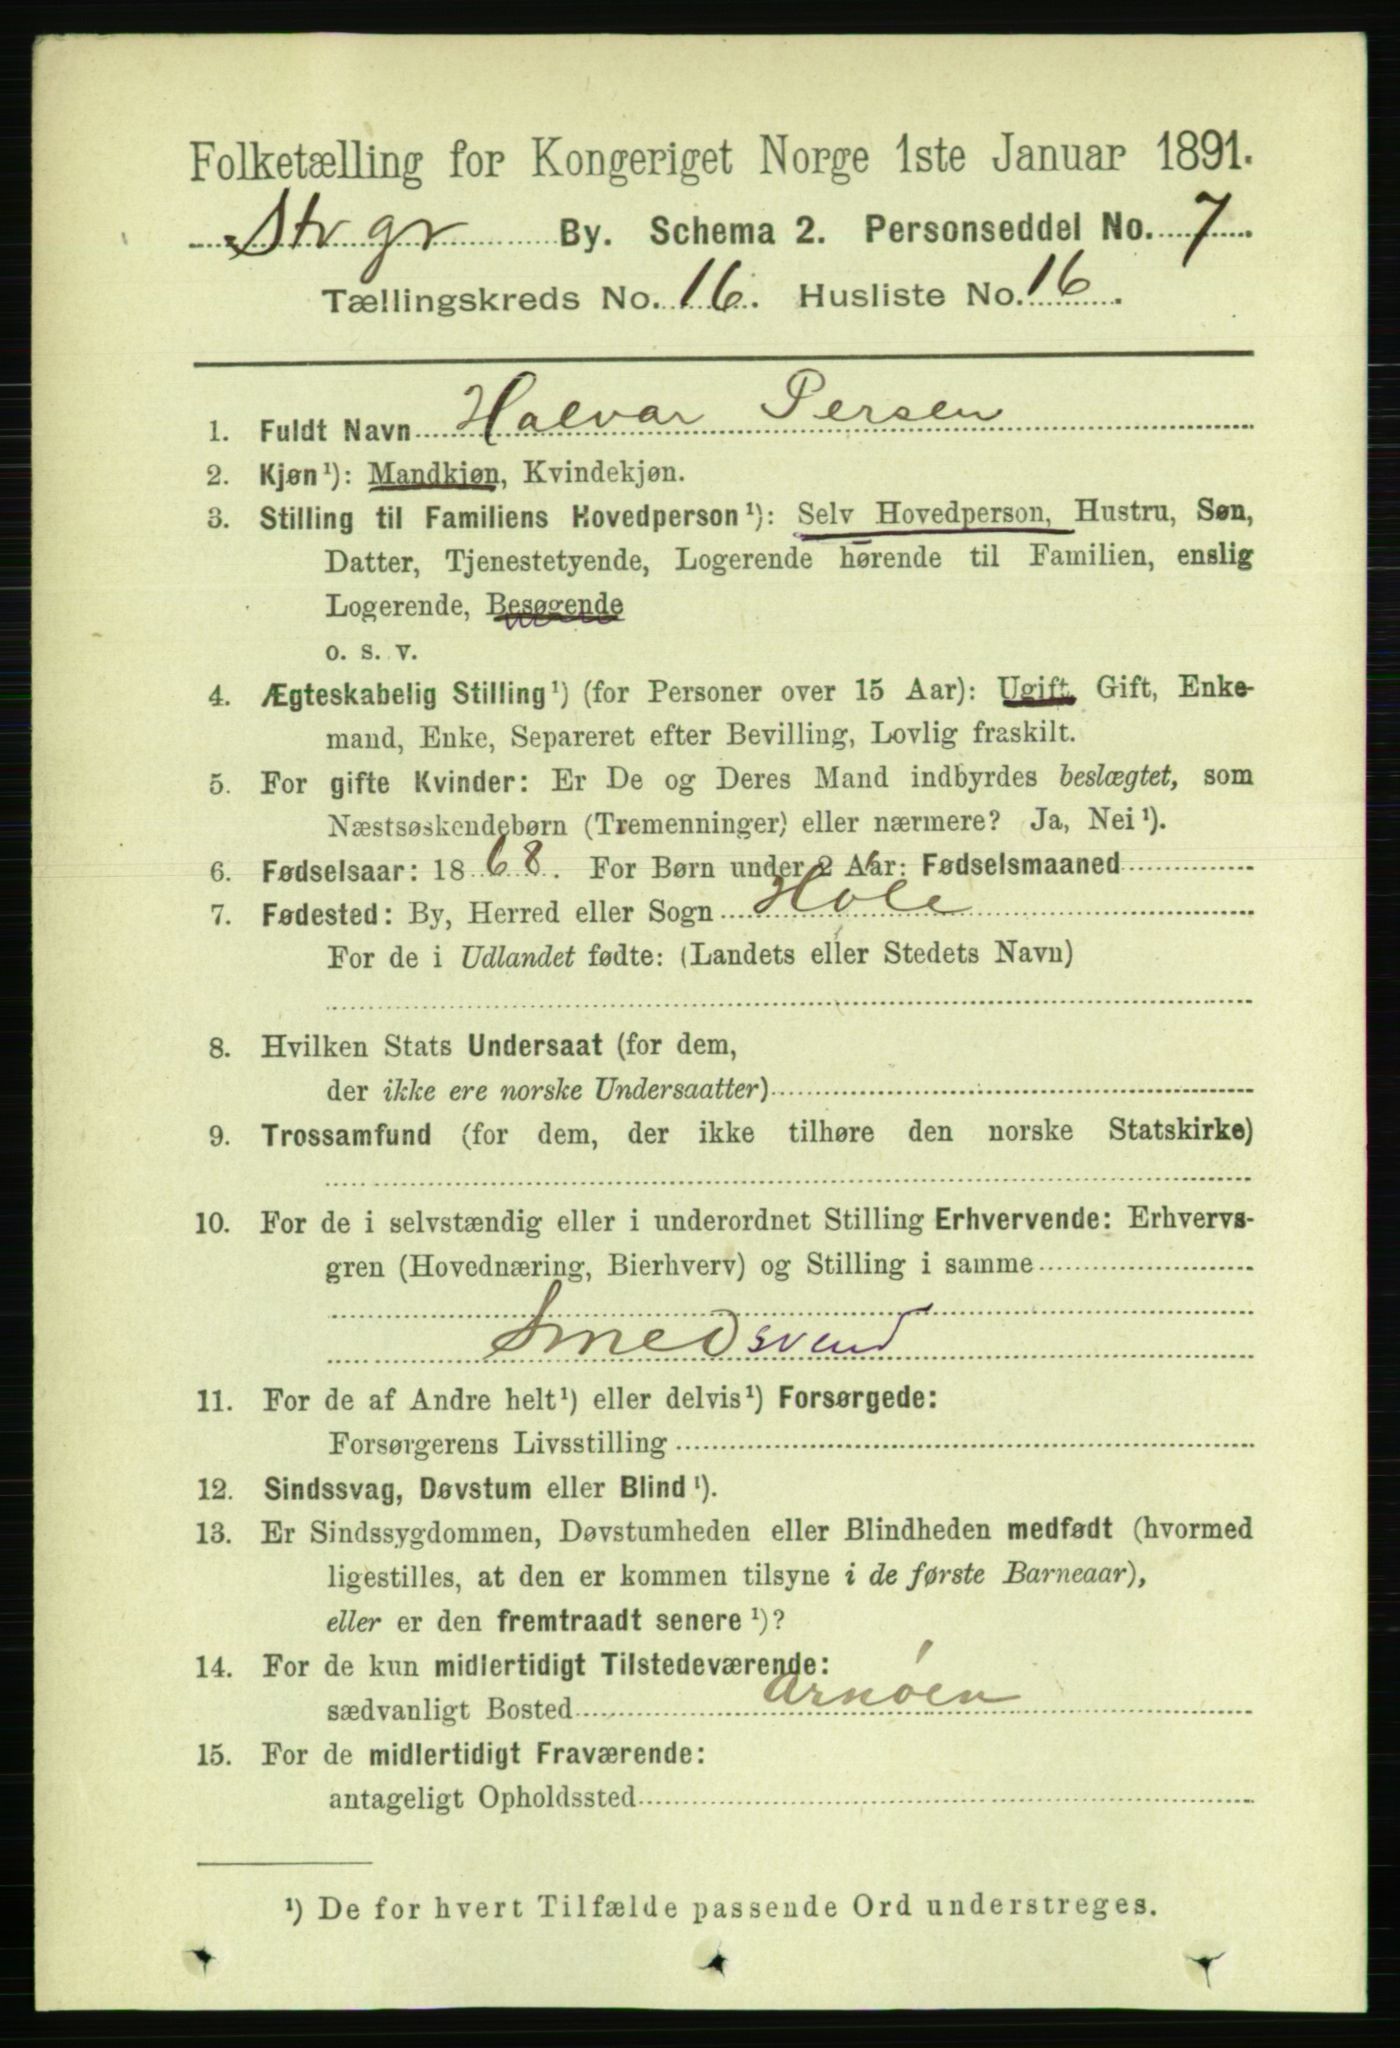 Folketælling for Kongeriget Norge 1ste Januar 1891.
Strgr By. Schema 2. Personseddel No. 7
Tællingskreds No. 16. Husliste No. 16.
1. Fuldt Navn Halvar Persen
2. Kjøn ¹): Mandkjøn, Kvindekjøn.
3. Stilling til Familiens Hovedperson ¹): Selv Hovedperson, Hustru, Søn,
Datter, Tjenestetyende, Logerende hørende til Familien, enslig
Logerende, Besøgende
o. s. v.
4. Ægteskabelig Stilling ¹) (for Personer over 15 Aar): Ugift, Gift, Enke-
mand, Enke, Separeret efter Bevilling, Lovlig fraskilt.
5. For gifte Kvinder: Er De og Deres Mand indbyrdes beslægtet, som
Næstsøskendebørn (Tremenninger) eller nærmere? Ja, Nei ¹).
6. Fødselsaar: 1868. For Børn under 2 Aar: Fødselsmaaned
7. Fødested: By, Herred eller Sogn Hole
For de i Udlandet fødte: (Landets eller Stedets Navn)
8. Hvilken Stats Undersaat (for dem,
der ikke ere norske Undersaatter)
9. Trossamfund (for dem, der ikke tilhøre den norske Statskirke)
10. For de i selvstændig eller i underordnet Stilling Erhvervende: Erhvervs-
gren (Hovednæring, Bierhverv) og Stilling i samme
Smedsvend
11. For de af Andre helt ¹) eller delvis ¹) Forsørgede:
Forsørgerens Livsstilling
12. Sindssvag, Døvstum eller Blind ¹).
13. Er Sindssygdommen, Døvstumheden eller Blindheden medfødt (hvormed
ligestilles, at den er kommen tilsyne i de første Barneaar),
eller er den fremtraadt senere ¹)?
14. For de kun midlertidigt Tilstedeværende:
sædvanligt Bosted Arnøen
15. For de midlertidigt Fraværende:
antageligt Opholdssted
¹) De for hvert Tilfælde passende Ord understreges.